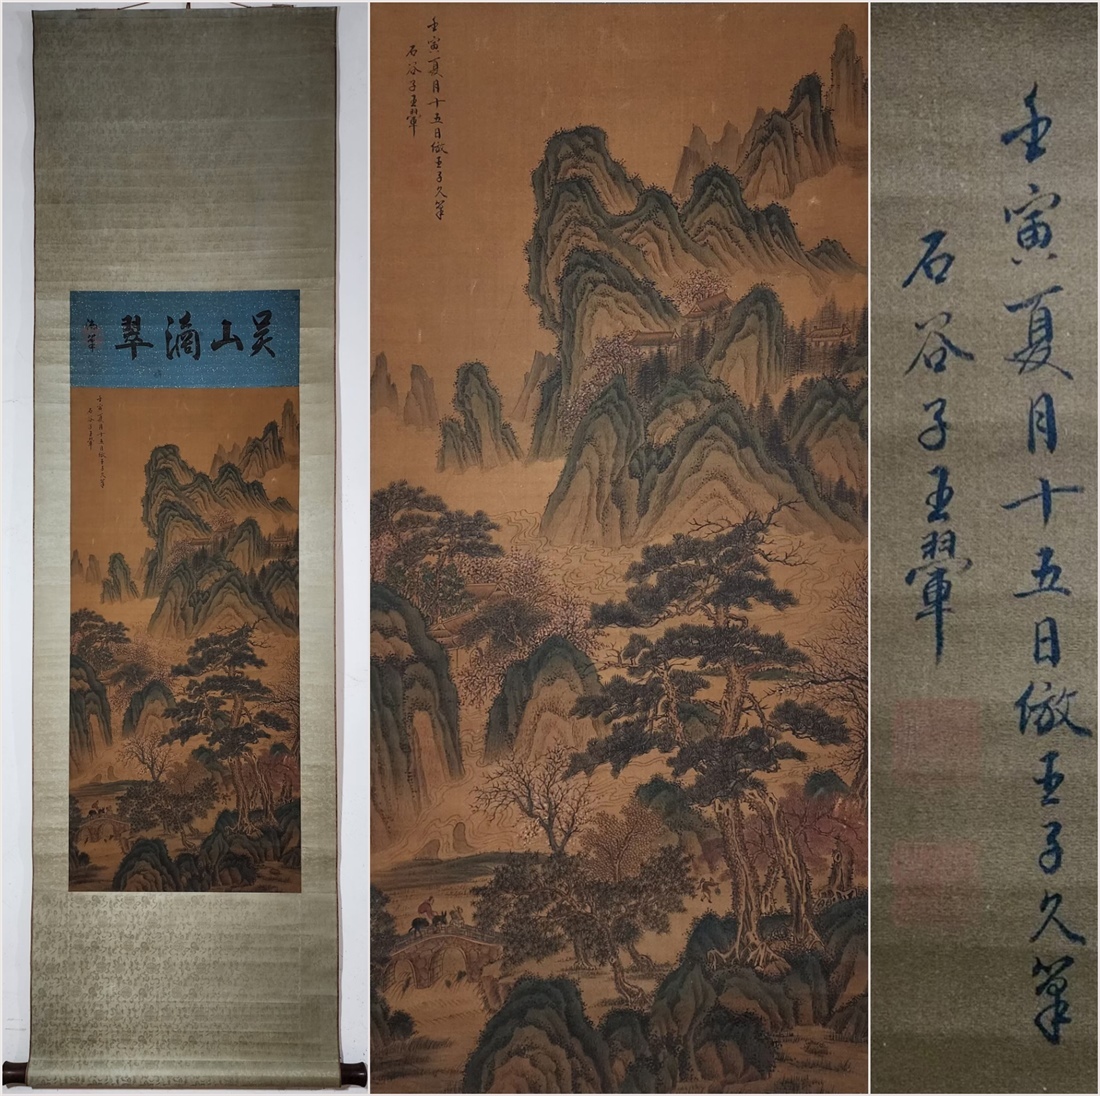 吴山滴翠
御筆
壬寅夏月十五日倣王子久筆
石谷子王翬
壬寅夏月十五日倣王子久筆
石谷子王翬
壬寅夏月十五日倣王子久筆
石谷子王翬